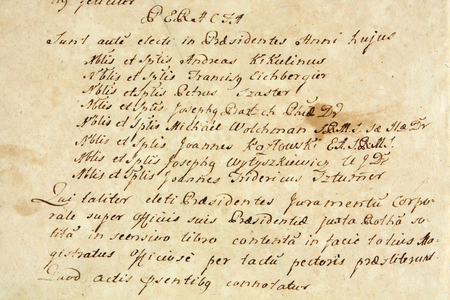 feliciter
PERACTA
Sunt autẽ electi in Præsidentes Anni hujus
Nblis et Spłis Andreas Kikulinus
Nblis et Spłis Francisq Eichbergier
Nblis et Spłis Petrus Szaster
Nblis et Spłis Josephq
Nblis et Spłis Michael Wolchman
Nblis et Spłis Joannes Kozłowski
Nblis et Spłis Josephq Wytyszkiewicz U J Dr
Nblis et Spłis Joannes Fridericus Szturmer
Qui taliter eleti Præsidentes Juramentũ Corpo-
rale super officiis suis Præsidentiæ juxta Rothã so-
litã in seorsivo libro contentã in facie totius Ma-
gistratus officiose per tactũ pectoris præstiterunt
Quod actis psentibq connotatur